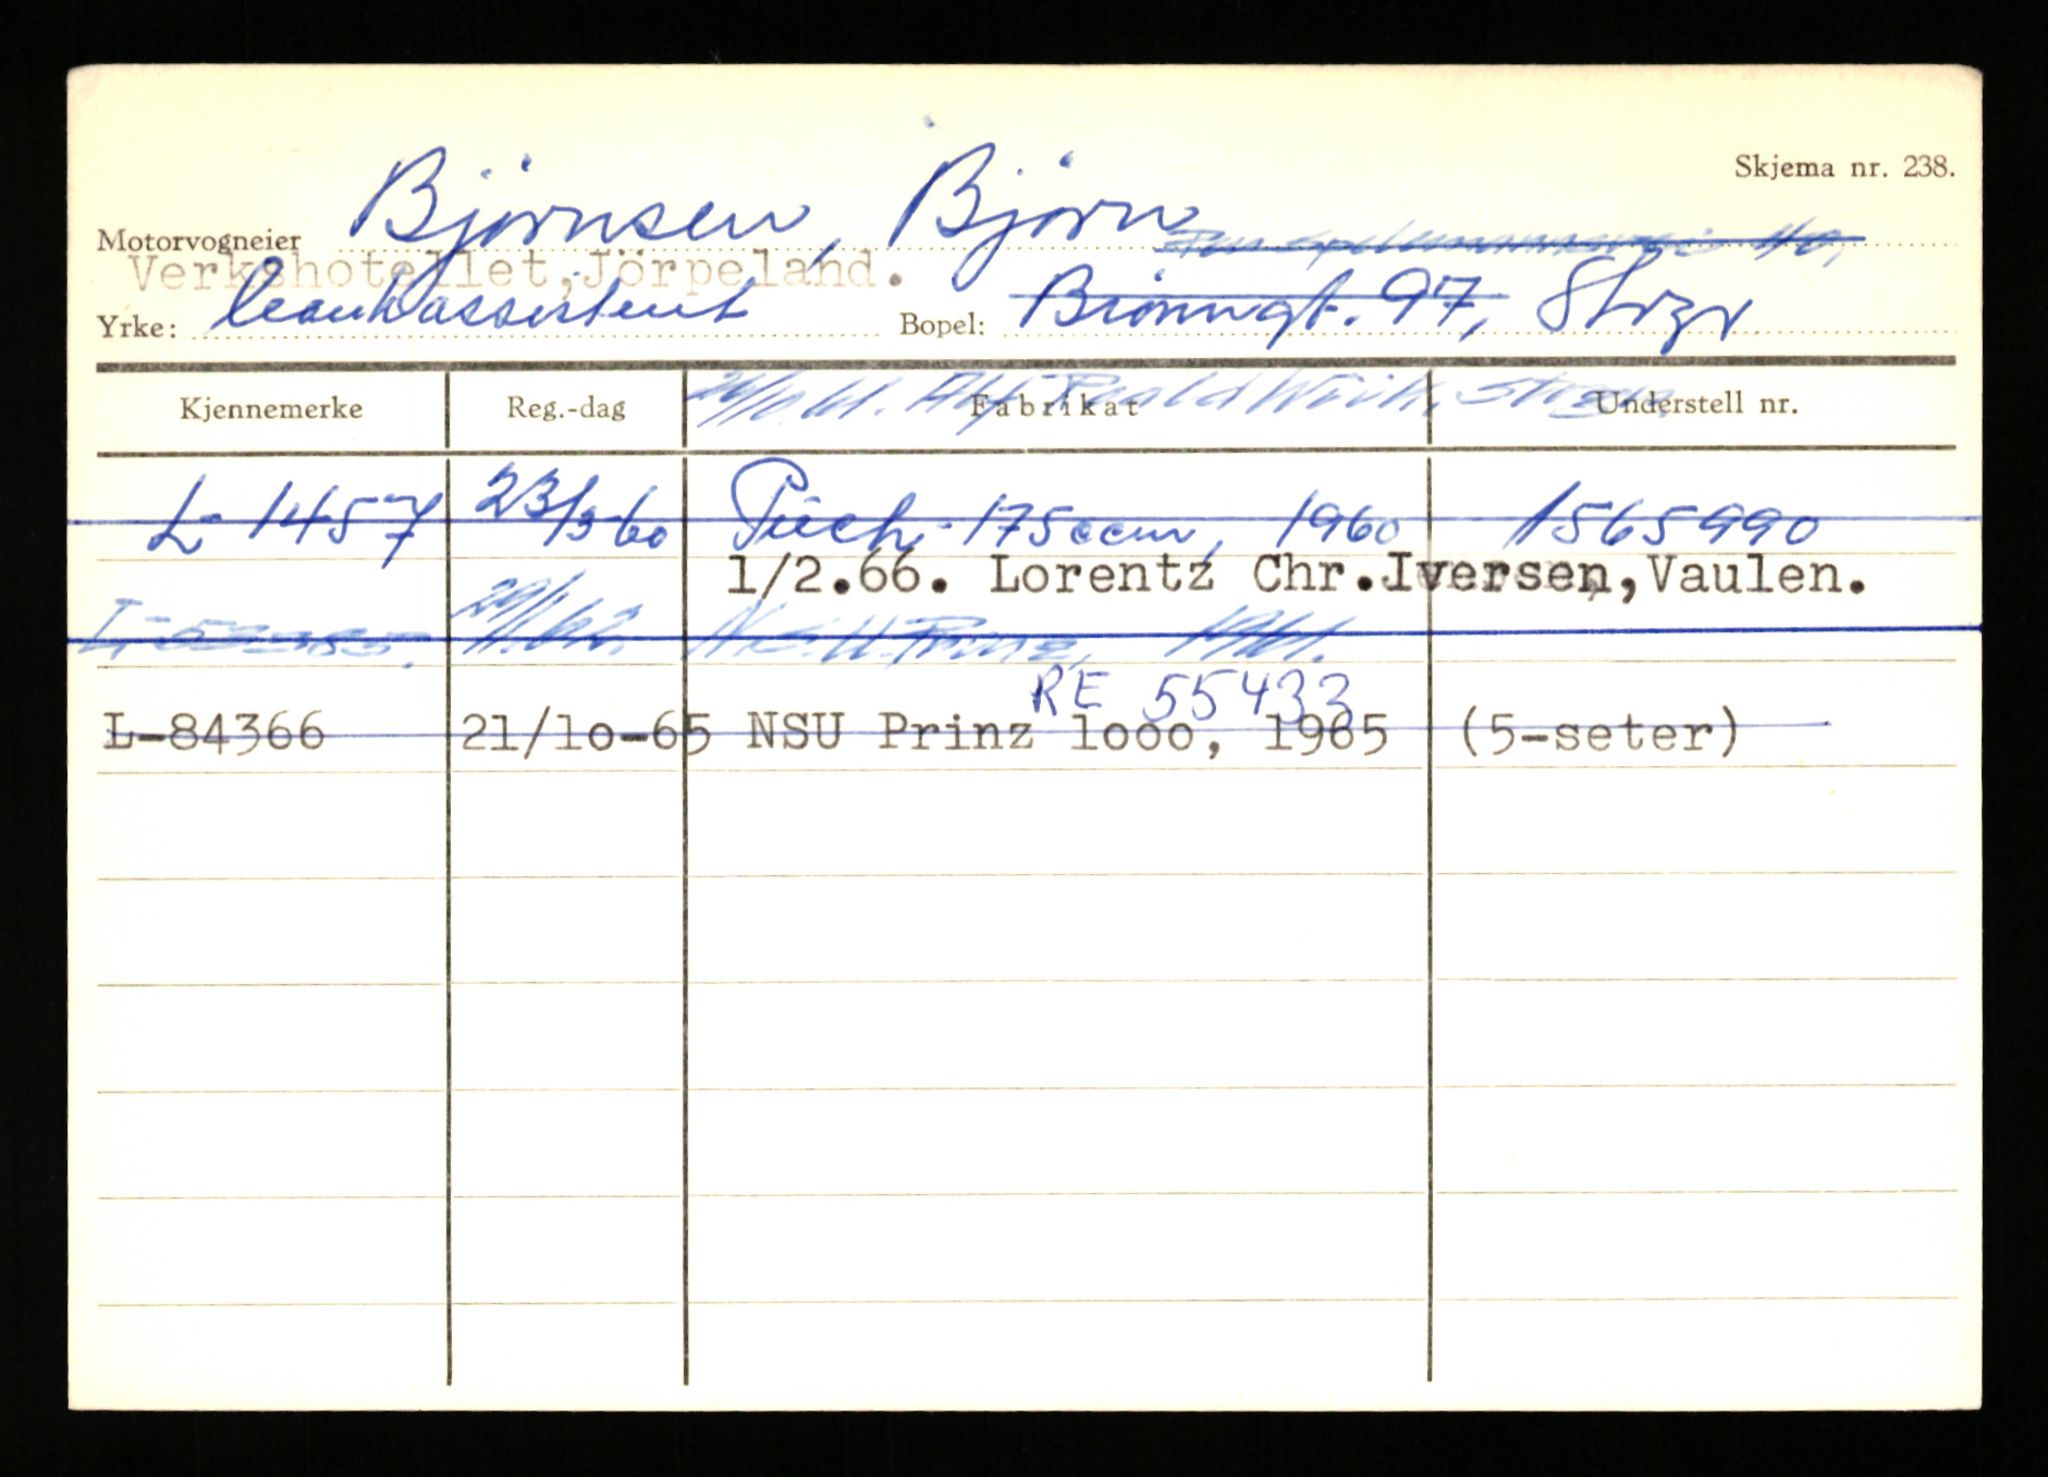 Skjema nr. 238.
Motorvogneier Björnsen, Björn
Verkshotellet, Jörpeland.
Yrke: Bopel: Bronngt. 97,
Kjennemerke Reg.-dag Fabrikat Understell nr.
L-1457 23/3 60 Puch 175 ccm, 1960 1565990
1/2.66. Lorentz Chr.Iversen,Vaulen.
N.S.U. Prinz, 1961.
RE 55433
L-84366 21/1o-65 NSU Prinz 1ooo, 1965 (5-seter)